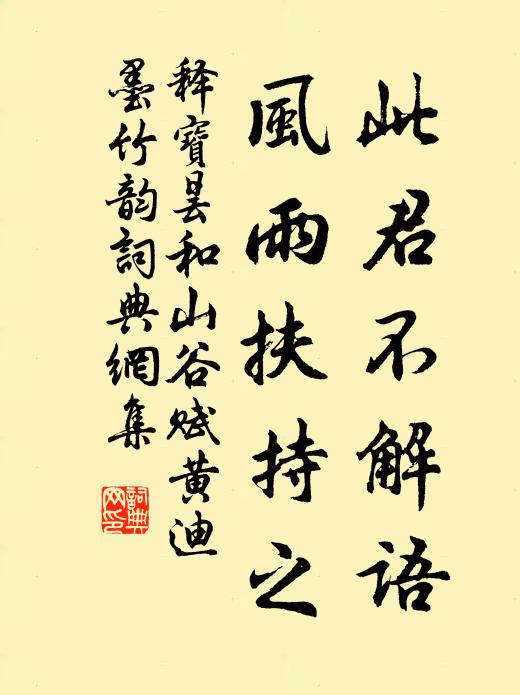 此君不解語
風雨扶持之
释寶曇和山谷赋黄迪
墨竹韵詞典網集
詞典
网印